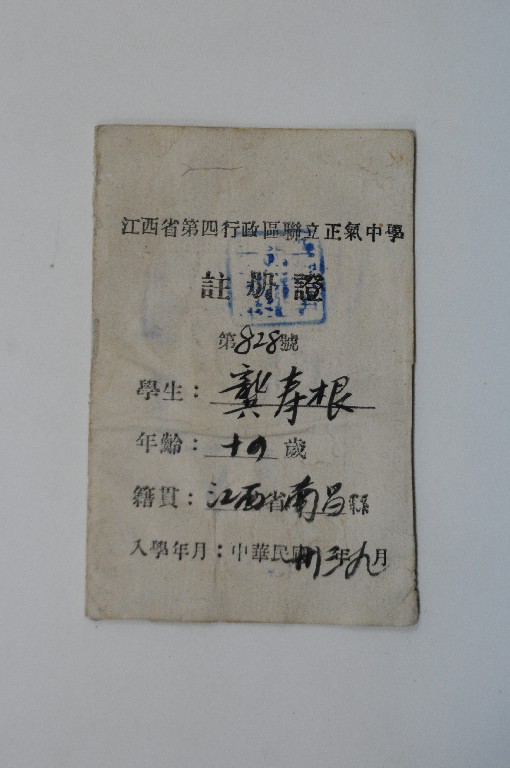 江西省第四行政區聯立正氣中學
註册證
第828號
學生：龔寿根
年齡：十四歲
籍貫：江西省南昌縣
入學年月：中華民國卅三年九月